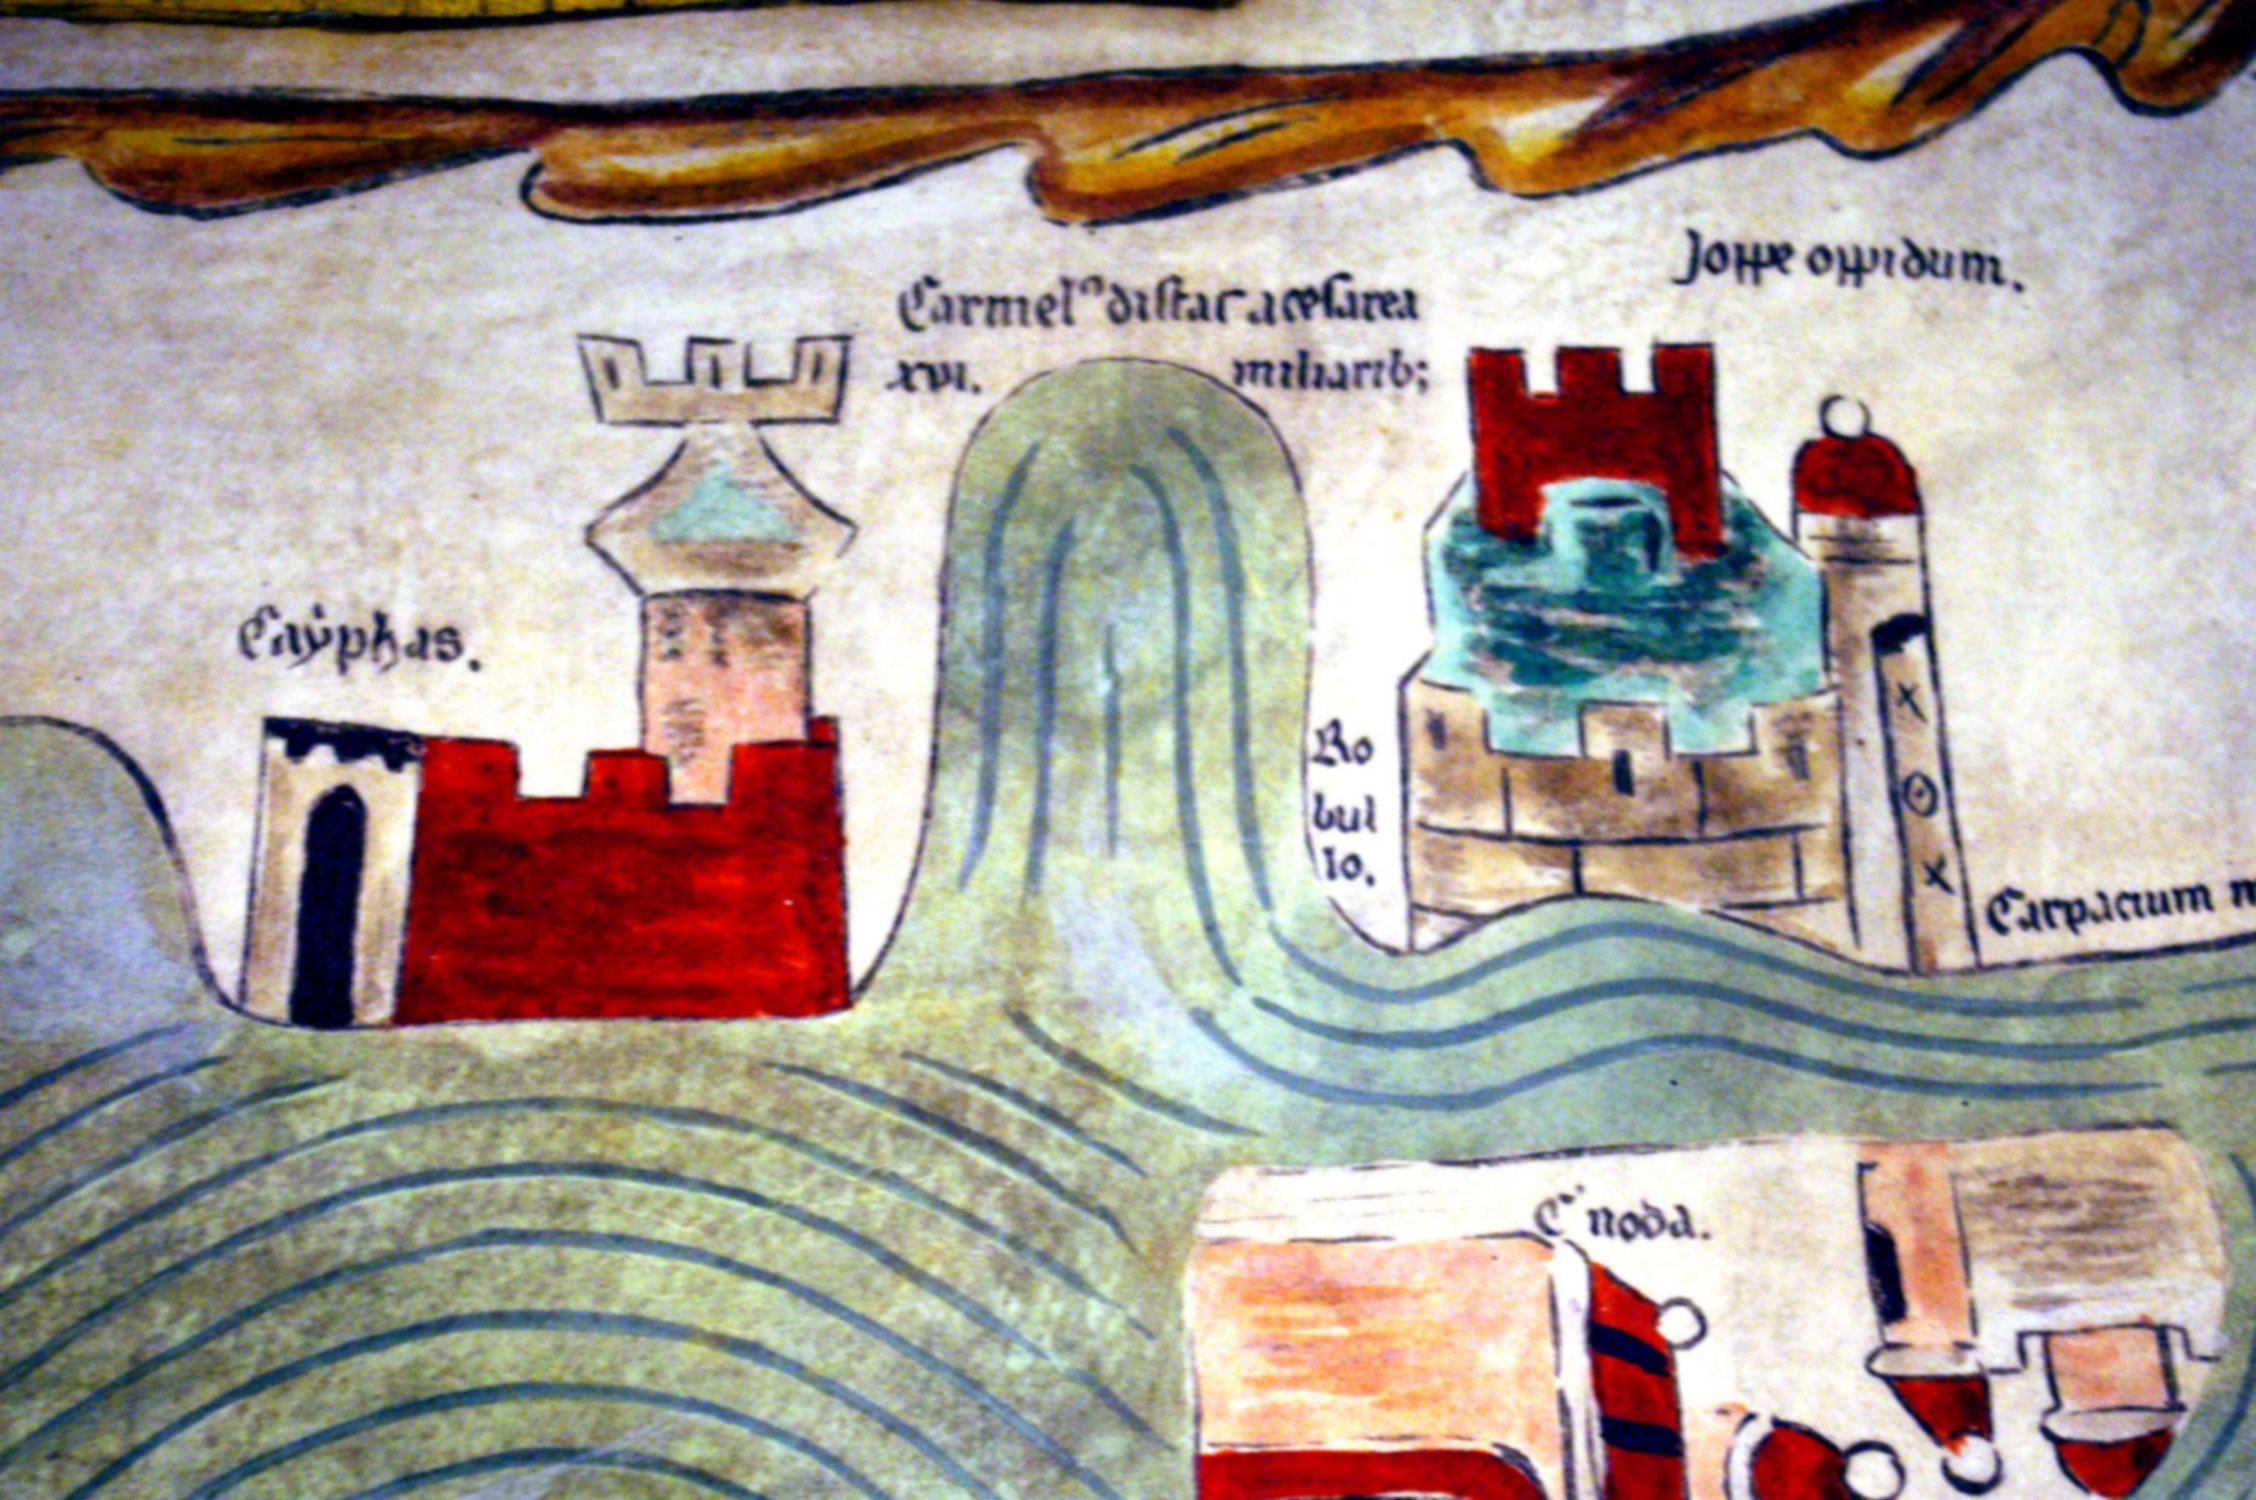 Joppe oppidum.
Carmelꝰ distat a cesarea
xvi. miliarib;
Cayphas.
Ro
bul
lo.
Carpacium m
noda.